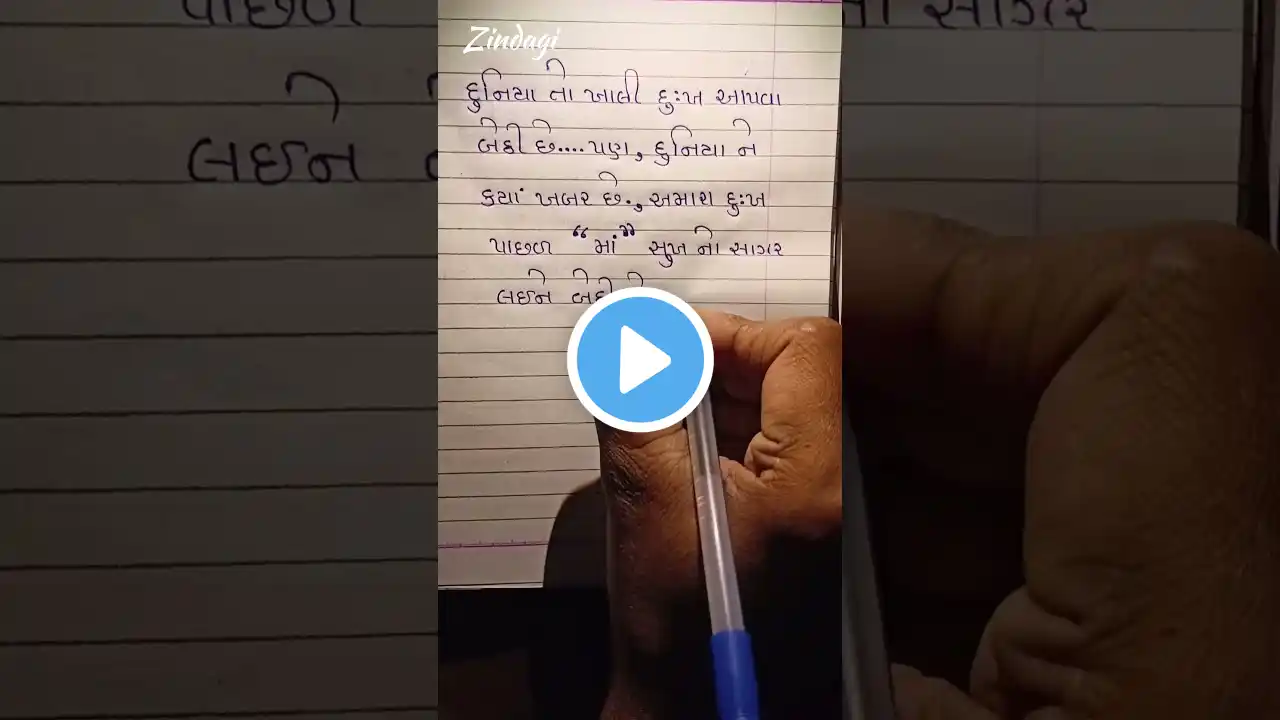 Zindagi
દુનિયા તો ખાલી દુઃખ આપવા
બેઠી છે.... પણ, દુનિયા ને
કયાં ખબર છે., અમારા દુઃખ
પાછળ “માં” સુખ નો સાગર
લઈને બેઠી